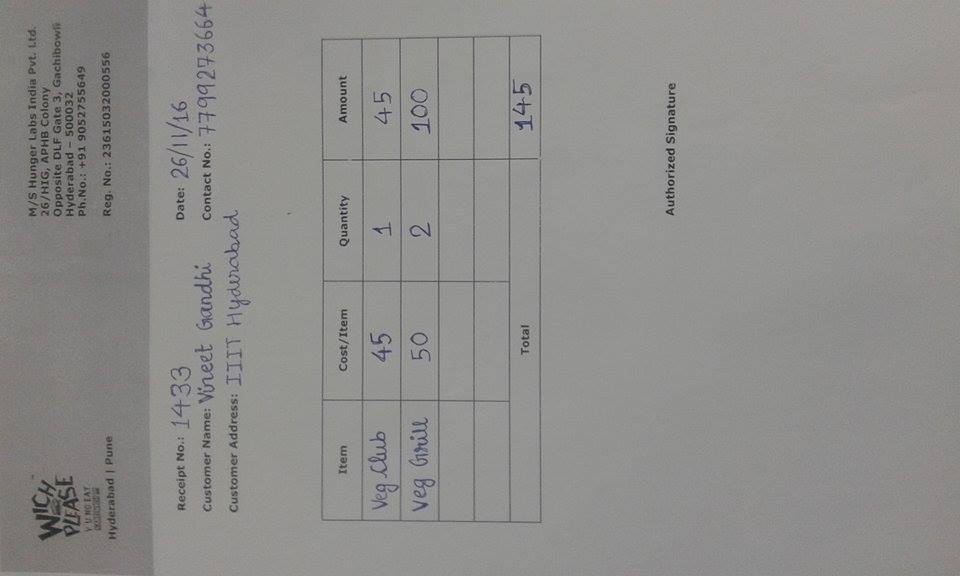 WICH
PLEASE
Y U NO EAT
Hyderabad | Pune
M/S Hunger Labs India Pvt. Ltd.
26/HIG, APHB Colony
Opposite DLF Gate 3, Gachibowli
Hyderabad – 500032
Ph.No.: +91 9052755649
Reg. No.: 23615032000556
Receipt No.: 1433 Date: 26/11/16
Customer Name: Vineet Gandhi Contact No.: 7799273664
Customer Address: IIIT Hyderabad
Item Cost/Item Quantity Amount
Veg Club 45 1 45
Veg Grill 50 2 100
Total 145
Authorized Signature